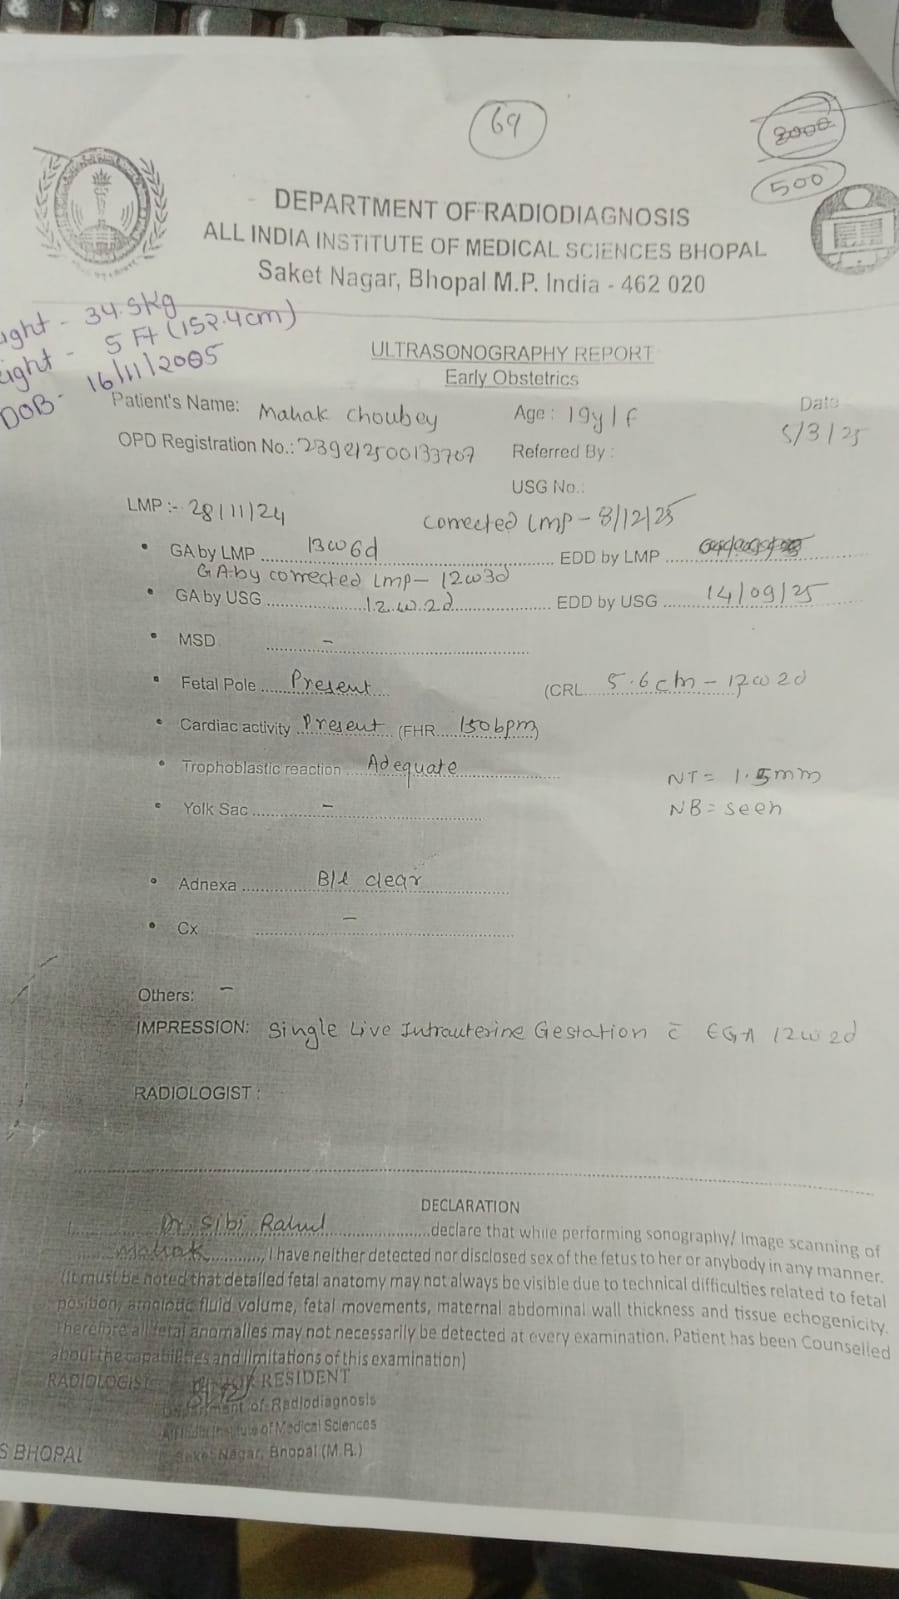 69
8000
500
DEPARTMENT OF RADIODIAGNOSIS
ALL INDIA INSTITUTE OF MEDICAL SCIENCES BHOPAL
Saket Nagar, Bhopal M.P. India - 462 020
ight - 34.5kg
eight - 5 Ft (152.4cm)
DOB- 16/11/2005
ULTRASONOGRAPHY REPORT
Early Obstetrics
Patient's Name: Mahak Choubey Age : 19y/F Date
OPD Registration No.: Referred By : 5/3/25
USG No.:
LMP :- 28/11/24 corrected LMP - 8/12/25
• GA by LMP 13w6d EDD by LMP
GA by corrected LMP - 12w3d
• GA by USG 12w2d EDD by USG 14/09/25
• MSD -
• Fetal Pole Present (CRL 5.6cm - 12w2d
• Cardiac activity Present (FHR 150bpm)
• Trophoblastic reaction Adequate NT = 1.5mm
• Yolk Sac - NB = seen
• Adnexa B/L clear
• Cx -
Others: -
IMPRESSION: Single Live Intrauterine Gestation c̄ EGA 12w2d
RADIOLOGIST :
DECLARATION
I Dr. Sibi Rahul declare that while performing sonography/ Image scanning of
Mahak, I have neither detected nor disclosed sex of the fetus to her or anybody in any manner.
(It must be noted that detailed fetal anatomy may not always be visible due to technical difficulties related to fetal
position, amniotic fluid volume, fetal movements, maternal abdominal wall thickness and tissue echogenicity.
Therefore all fetal anomalies may not necessarily be detected at every examination. Patient has been Counselled
about the capabilities and limitations of this examination)
RADIOLOGIST RESIDENT
Department of Radiodiagnosis
All India Institute of Medical Sciences
S BHOPAL Saket Nagar, Bhopal (M.P.)